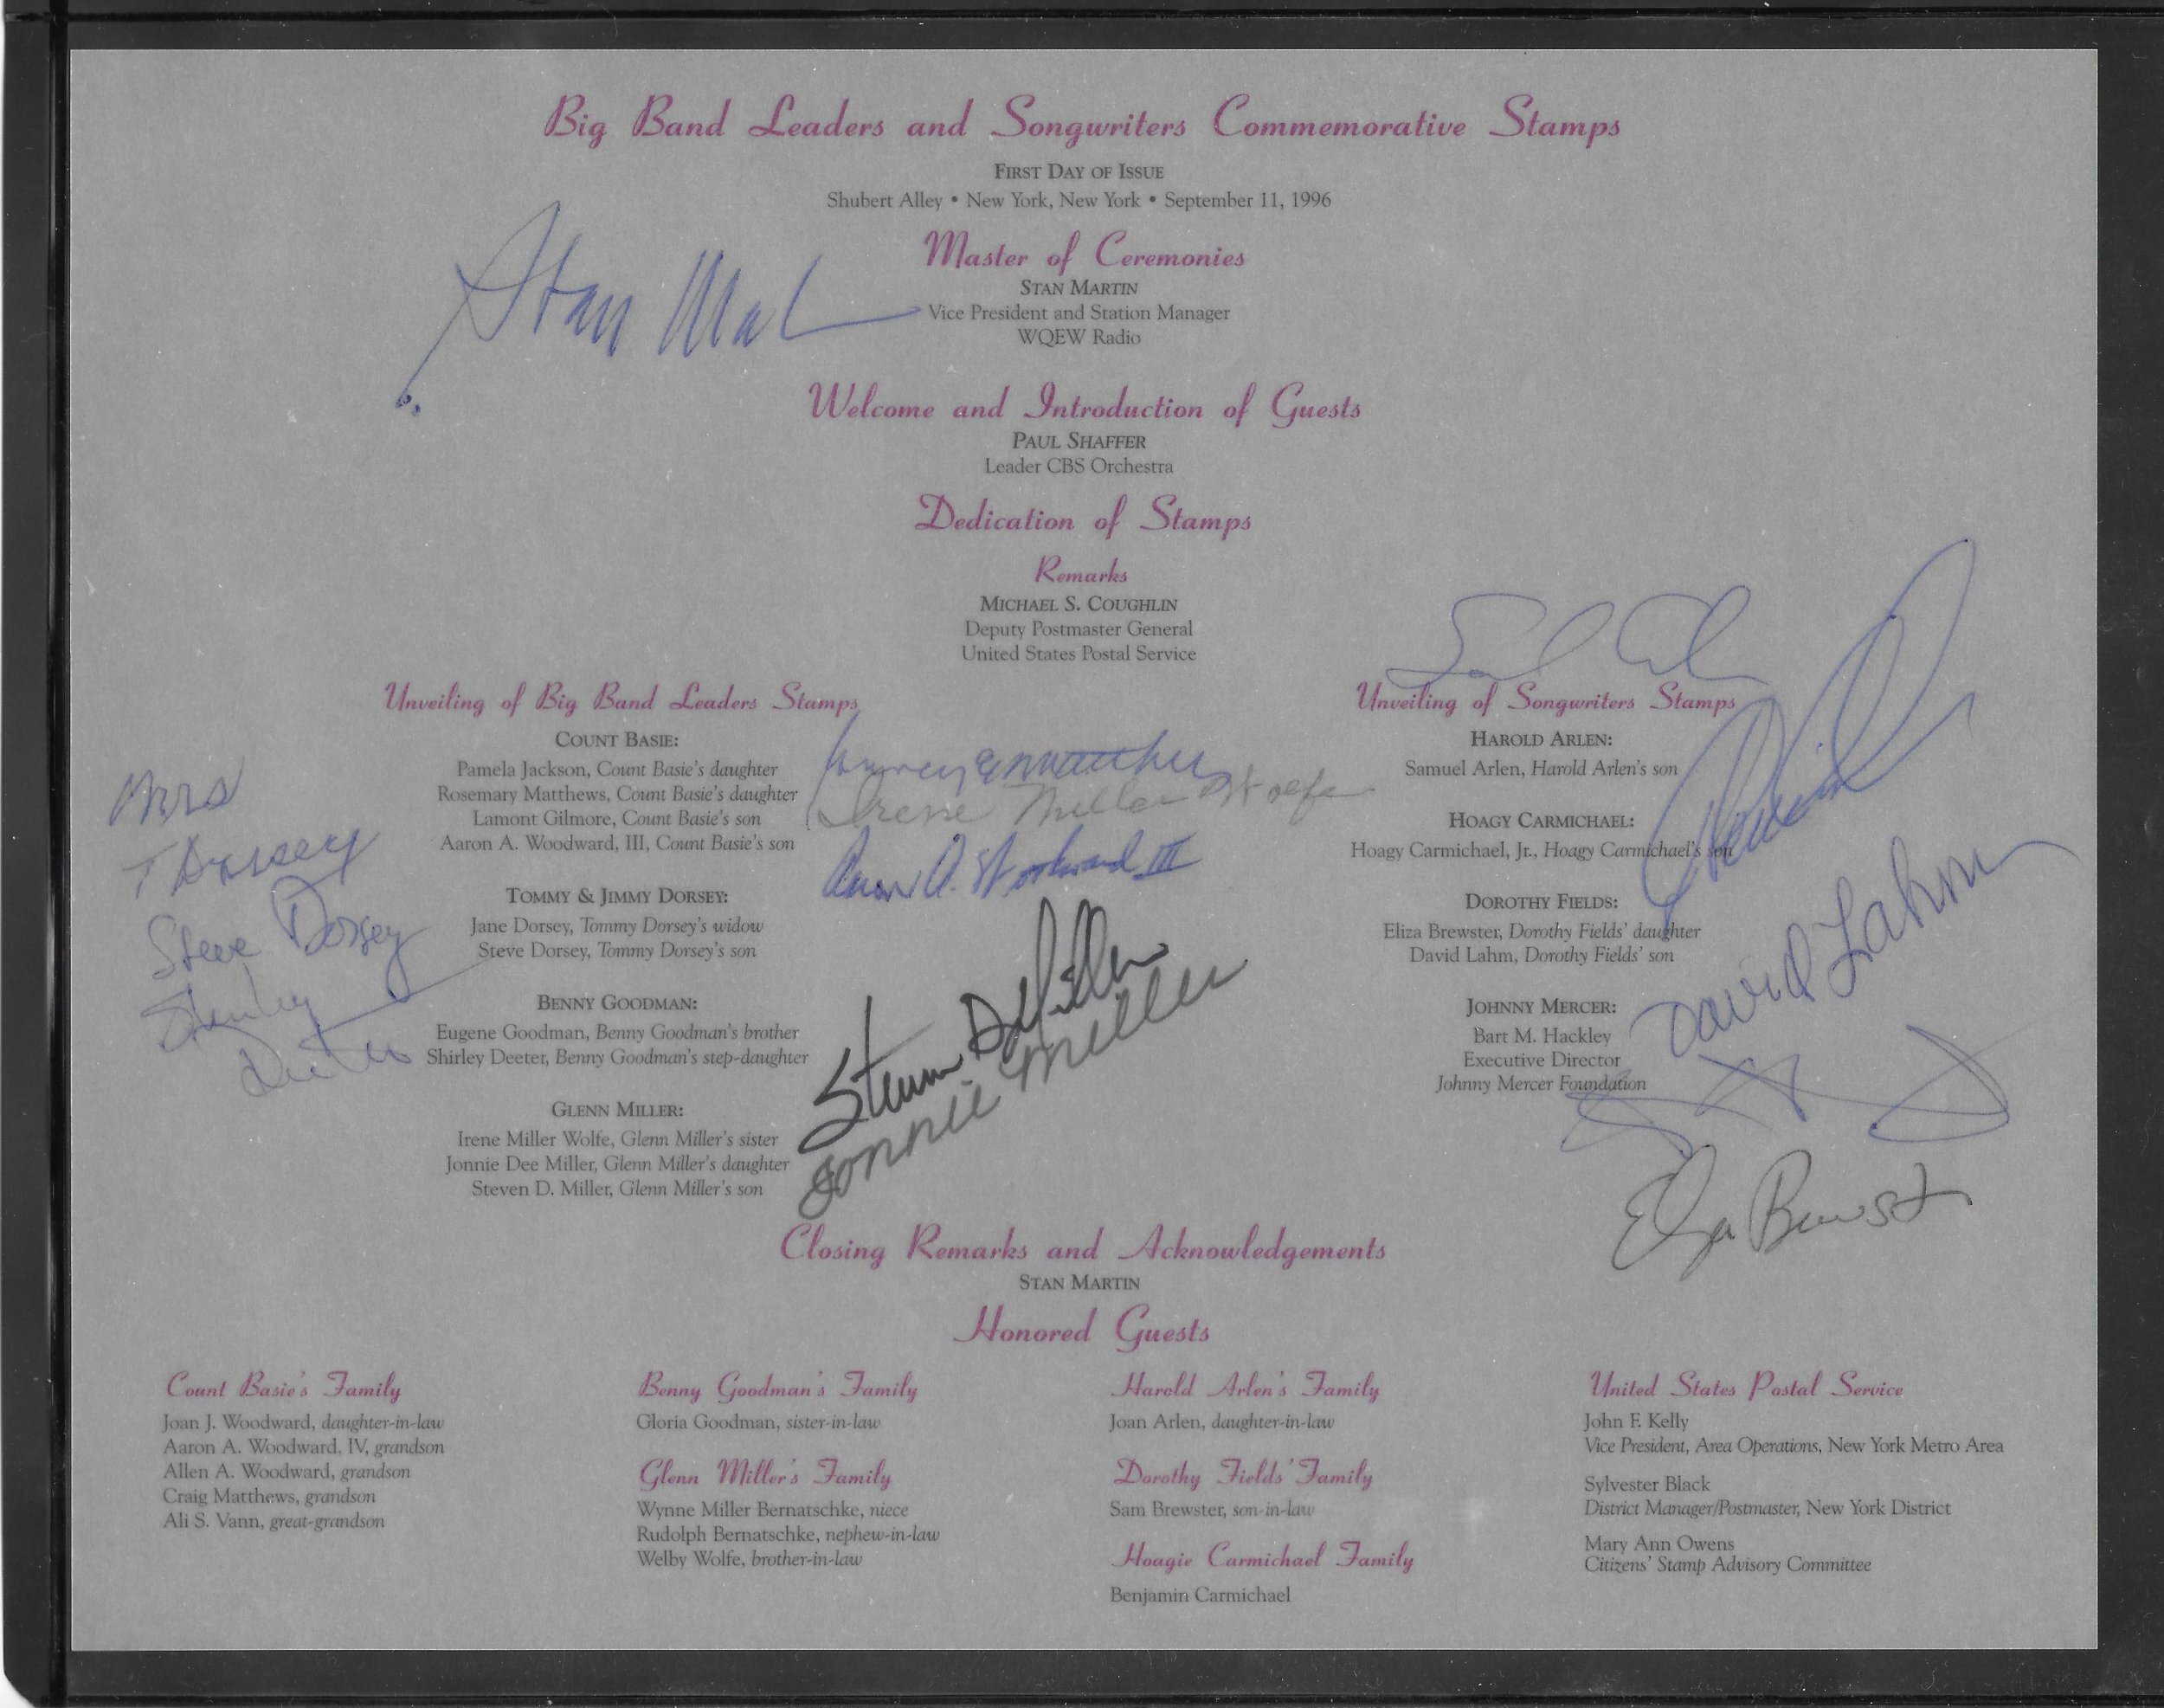 Big Band Leaders and Songwriters Commemorative Stamps
FIRST DAY OF ISSUE
Shubert Alley • New York, New York • September 11, 1996
Master of Ceremonies
STAN MARTIN
Vice President and Station Manager
WQEW Radio
Stan
Welcome and Introduction of Guests
PAUL SHAFFER
Leader CBS Orchestra
Dedication of Stamps
Remarks
MICHAEL S. COUGHLIN
Deputy Postmaster General
United States Postal Service
Unveiling of Big Band Leaders Stamps
COUNT BASIE:
Pamela Jackson, Count Basie's daughter
Rosemary Matthews, Count Basie's daughter
Lamont Gilmore, Count Basie's son
Aaron A. Woodward, III, Count Basie's son
TOMMY & JIMMY DORSEY:
Jane Dorsey, Tommy Dorsey's widow
Steve Dorsey, Tommy Dorsey's son
BENNY GOODMAN:
Eugene Goodman, Benny Goodman's brother
Shirley Deeter, Benny Goodman's step-daughter
GLENN MILLER:
Irene Miller Wolfe, Glenn Miller's sister
Jonnie Dee Miller, Glenn Miller's daughter
Steven D. Miller, Glenn Miller's son
Mrs
T Dorsey
Steve Dorsey
Shirley
Deeter
Irene Miller Wolfe
Aaron A. Woodward III
Steven D Miller
Jonnie Miller
Unveiling of Songwriters Stamps
HAROLD ARLEN:
Samuel Arlen, Harold Arlen's son
HOAGY CARMICHAEL:
Hoagy Carmichael, Jr., Hoagy Carmichael's son
DOROTHY FIELDS:
Eliza Brewster, Dorothy Fields' daughter
David Lahm, Dorothy Fields' son
JOHNNY MERCER:
Bart M. Hackley
Executive Director
Johnny Mercer Foundation
David Lahm
Eliza Brewster
Closing Remarks and Acknowledgements
STAN MARTIN
Honored Guests
Count Basie's Family
Joan J. Woodward, daughter-in-law
Aaron A. Woodward, IV, grandson
Allen A. Woodward, grandson
Craig Matthews, grandson
Ali S. Vann, great-grandson
Benny Goodman's Family
Gloria Goodman, sister-in-law
Glenn Miller's Family
Wynne Miller Bernatschke, niece
Rudolph Bernatschke, nephew-in-law
Welby Wolfe, brother-in-law
Harold Arlen's Family
Joan Arlen, daughter-in-law
Dorothy Fields' Family
Sam Brewster, son-in-law
Hoagie Carmichael Family
Benjamin Carmichael
United States Postal Service
John F. Kelly
Vice President, Area Operations, New York Metro Area
Sylvester Black
District Manager/Postmaster, New York District
Mary Ann Owens
Citizens' Stamp Advisory Committee